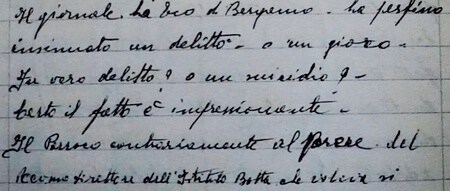 Il giornale. L'Eco di Bergamo. ha perfino
insinuato un delitto. o un gioco.
Fu vero delitto? o un suicidio?
Certo il fatto é impressionante.
Il Parroco contrariamente al parere del
direttore dell'Istituto Botta che voleva si